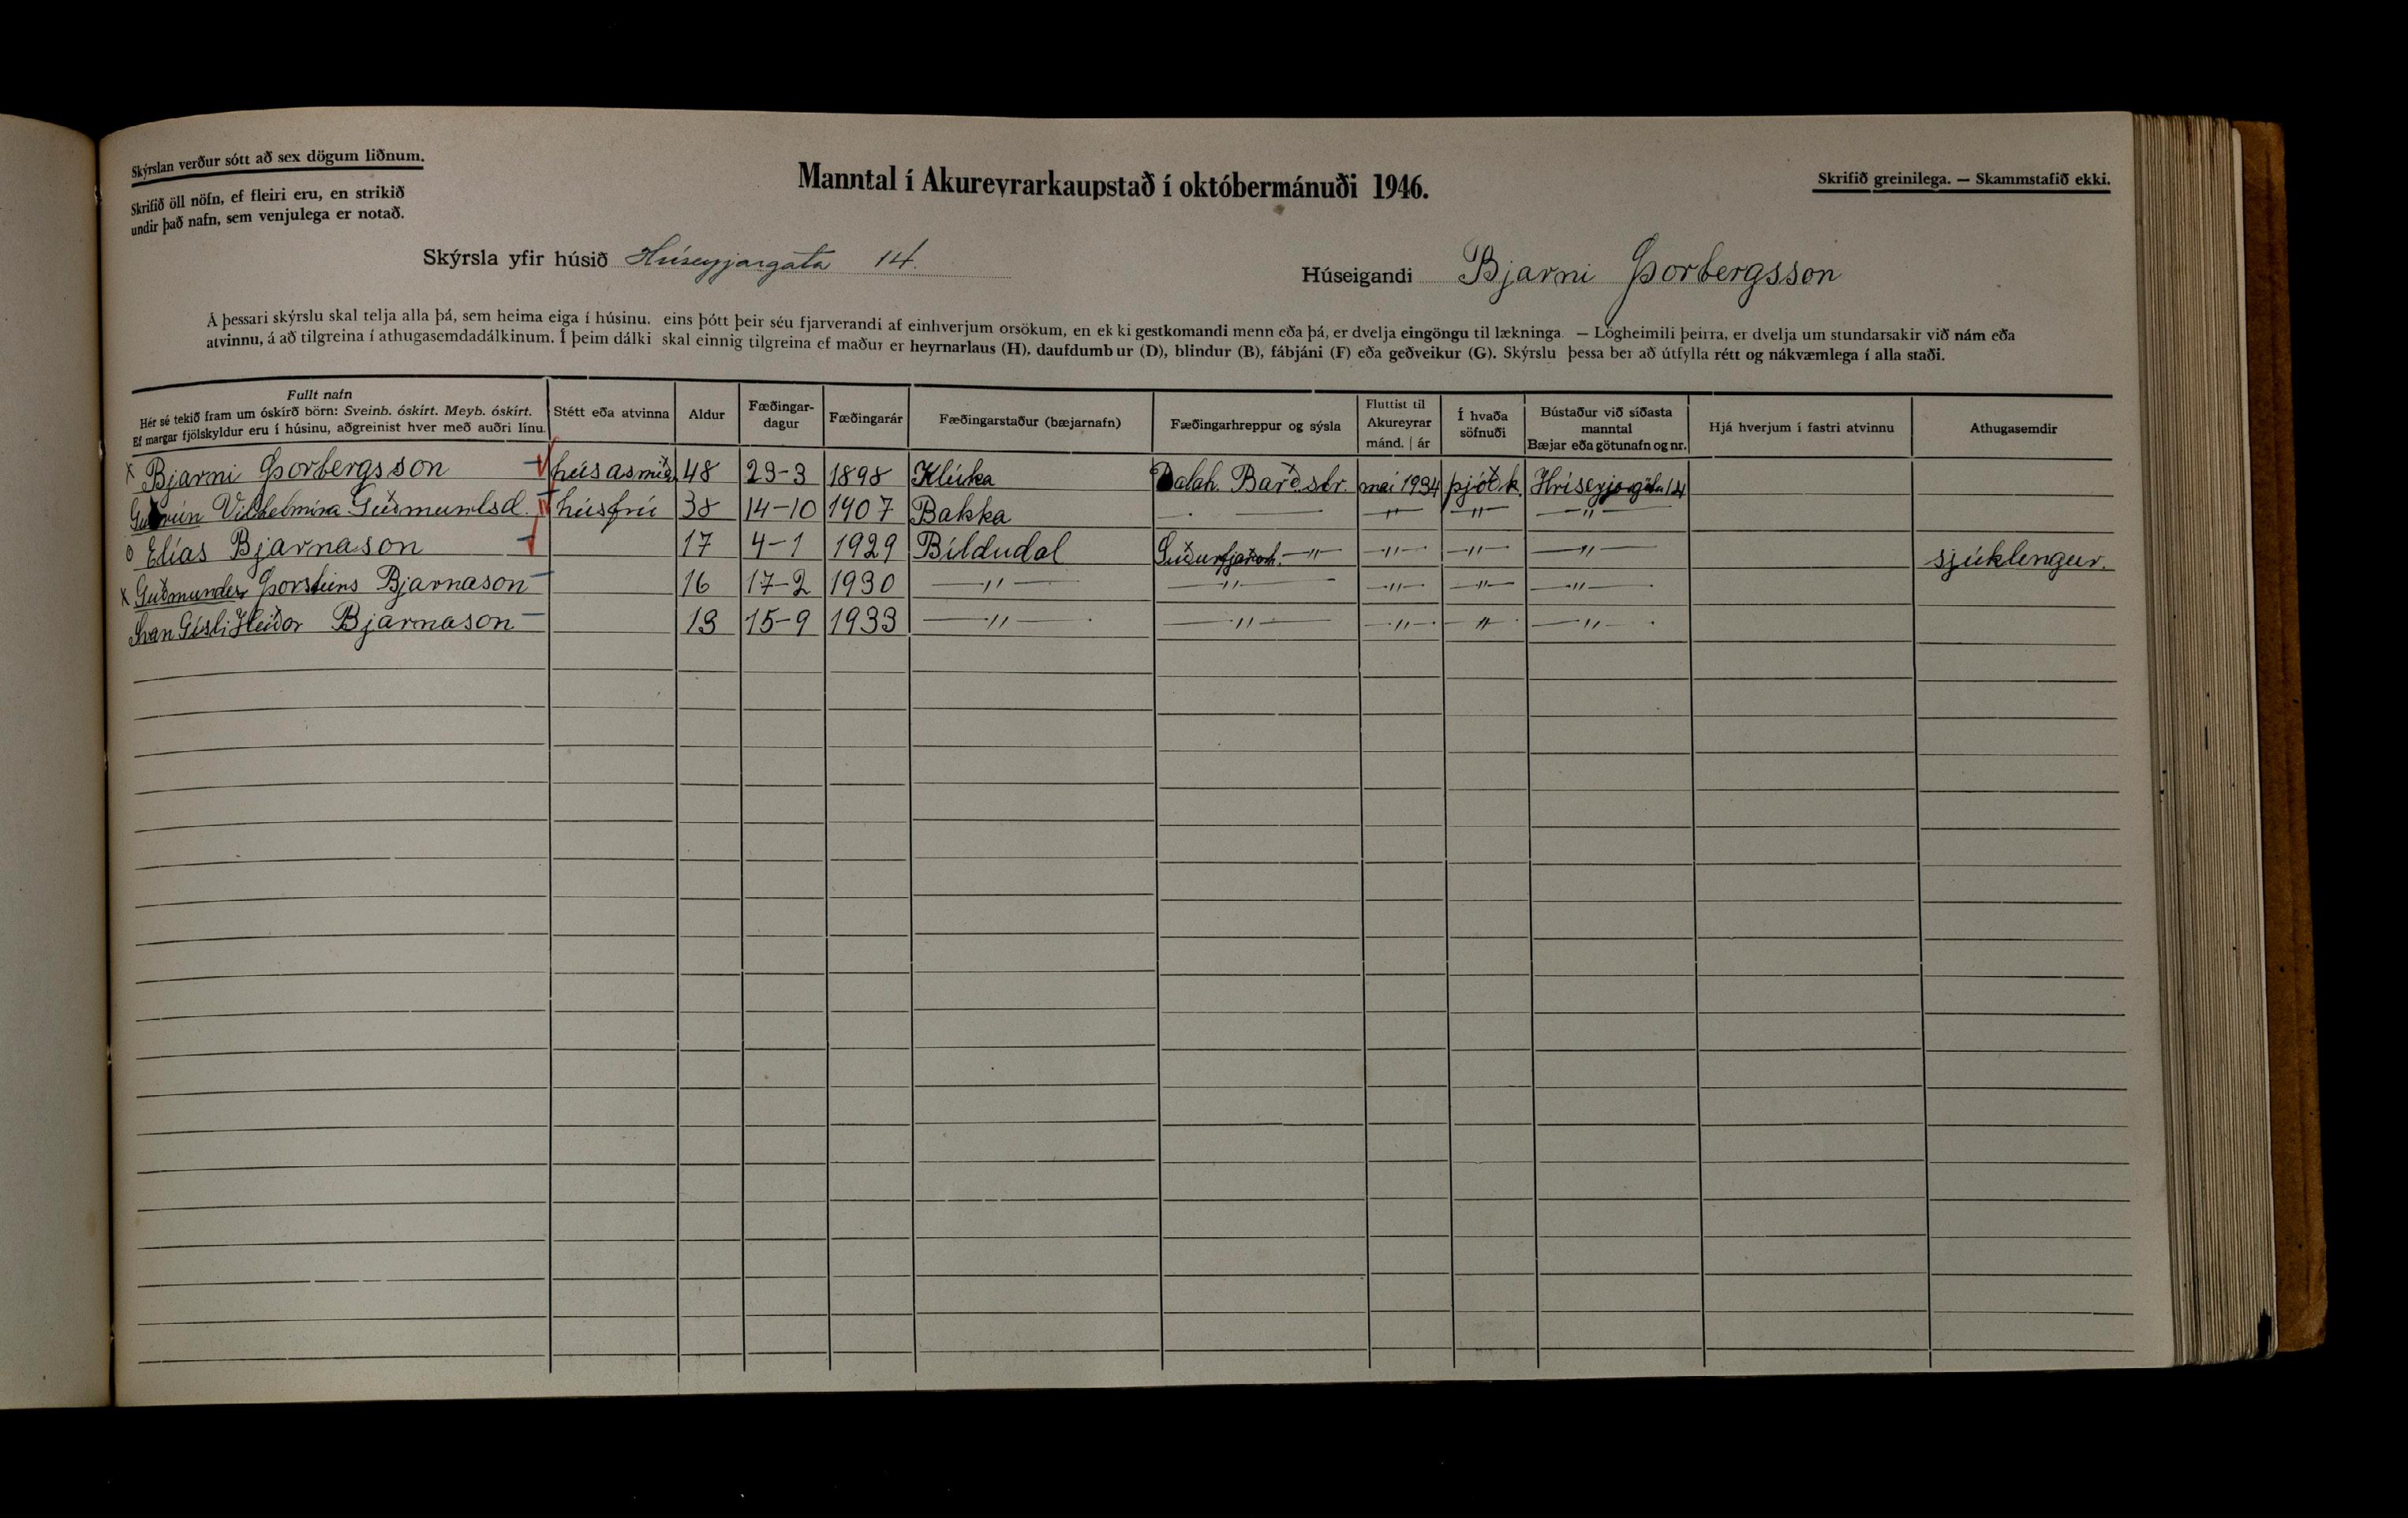 Skýrslan verður sótt að sex dögum liðnum.
Skrifið öll nöfn, ef fleiri eru, en strikið
undir það nafn, sem venjulega er notað.
Manntal í Akureyrarkaupstað í októbermánuði 1946.
Skrifið greinilega. — Skammstafið ekki.
Skýrsla yfir húsið Hríseyjargata 14.
Húseigandi Bjarni Þorbergsson
Á þessari skýrslu skal telja alla þá, sem heima eiga í húsinu, eins þótt þeir séu fjarverandi af einhverjum orsökum, en ekki gestkomandi menn eða þá, er dvelja eingöngu til lækninga. — Lögheimili þeirra, er dvelja um stundarsakir við nám eða
atvinnu, á að tilgreina í athugasemdadálkinum. Í þeim dálki skal einnig tilgreina ef maður er heyrnarlaus (H), daufdumbur (D), blindur (B), fábjáni (F) eða geðveikur (G). Skýrslu þessa ber að útfylla rétt og nákvæmlega í alla staði.
Fullt nafn
Hér sé tekið fram um óskírð börn: Sveinb. óskírt. Meyb. óskírt.
Ef margar fjölskyldur eru í húsinu, aðgreinist hver með auðri línu.
Stétt eða atvinna
Aldur
Fæðingar-
dagur
Fæðingarár
Fæðingarstaður (bæjarnafn)
Fæðingarhreppur og sýsla
Fluttist til
Akureyrar
mánd. | ár
Í hvaða
söfnuði
Bústaður við síðasta
manntal
Bæjar eða götunafn og nr.
Hjá hverjum í fastri atvinnu
Athugasemdir
x Bjarni Þorbergsson húsasmið 48 23-3 1898 Klúka Dalah. Barð.str. mai 1934 þjóðk. Hríseyjargötu 14
Guðrún Vilhelmína Guðmundsd. húsfrú 38 14-10 1907 Bakka — — — " — — " — — " —
o Elías Bjarnason 17 4-1 1929 Bíldudal Suðurfjarðarh. — " — — " — — " — — " — sjúklengur.
x Guðmundur Þorsteins Bjarnason 16 17-2 1930 — " — — " — — " — — " — — " —
Svan Gísli Heiðar Bjarnason 13 15-9 1933 — " — — " — — " — — " — — " —